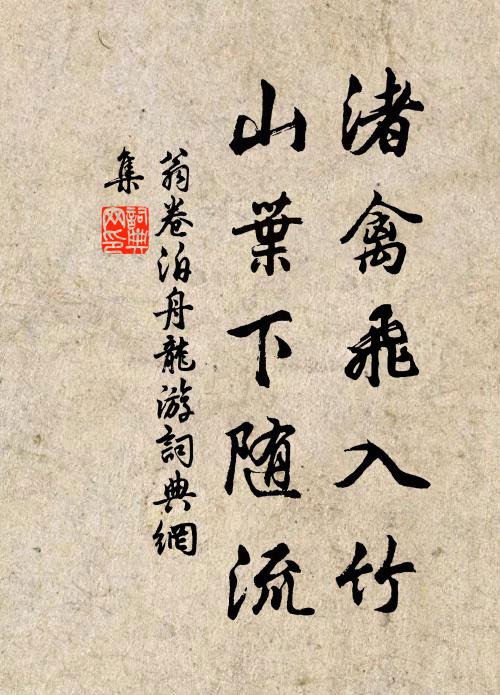 渚禽飛入竹
山葉下随流
翁卷泊舟龍游詞典網
集
詞典網印